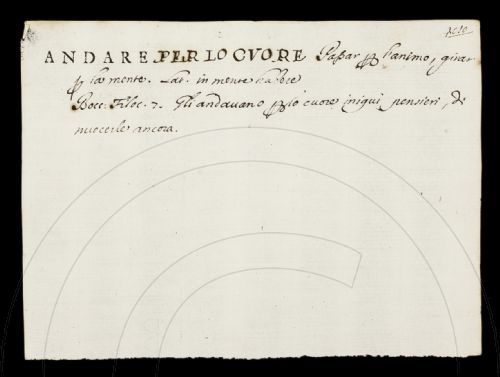 ANDARE PER LO CVORE Passar p l'animo, girar
p la mente. Lat. in mente habere
Bocc. Filoc. 7. Gli andavano p lo cuore iniqui pensieri, di
nuocerle ancora.